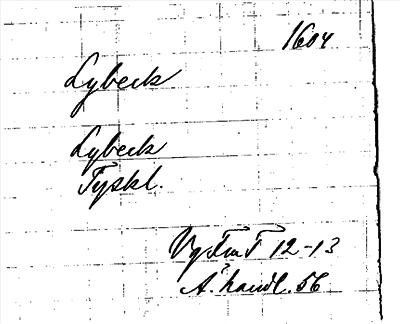 1604
Lybeck
Lybeck
Tyskl.
VgFmT 12-13
A. handl. 56